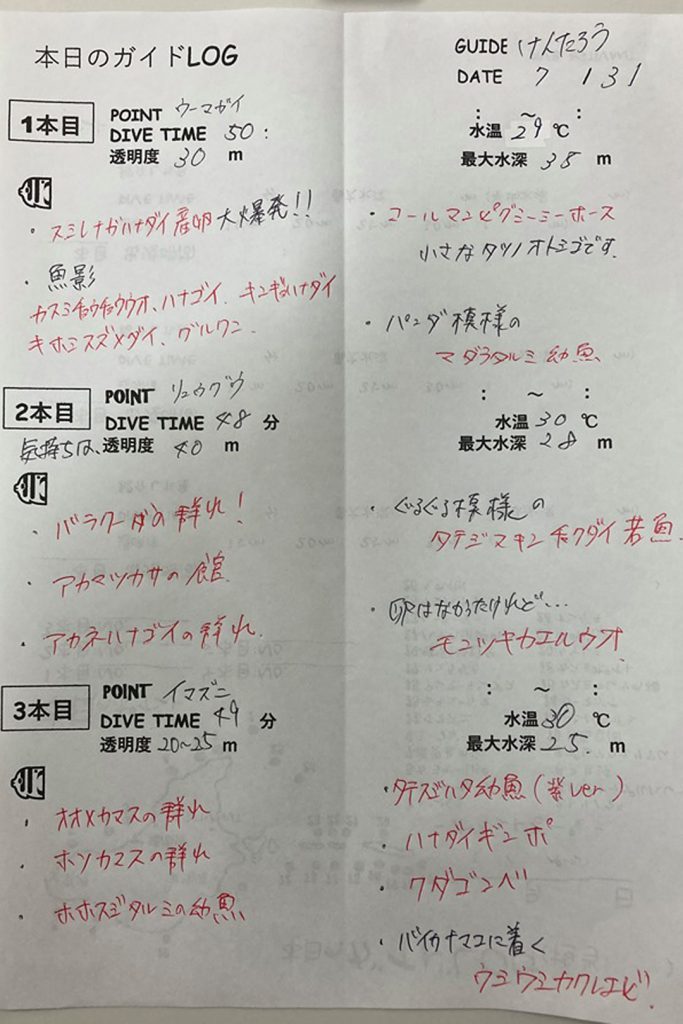 本日のガイドLOG
GUIDE けんたろう
DATE 7 / 31
1本目
POINT ウーマガイ
DIVE TIME 50 :
透明度 30 m
: ~ :
水温 29 ℃
最大水深 38 m
・スミレナガハナダイ産卵大爆発!!
・魚影
カスミチョウチョウウオ、ハナゴイ、キンギョハナダイ
キホシスズメダイ、グルクン.
・コールマンピグミーシーホース
小さなタツノオトシゴです.
・パンダ模様の
マダラタルミ幼魚
2本目
POINT リュウグウ
DIVE TIME 48 分
気持ちは、透明度 40 m
: ~ :
水温 30 ℃
最大水深 28 m
・バラクーダの群れ!
・アカマツカサの館
・アカネハナゴイの群れ.
・ぐるぐる模様の
タテジマキンチャクダイ若魚
・卵はなかったけれど…
モンツキカエルウオ
3本目
POINT イマズニ
DIVE TIME 49 分
透明度 20~25 m
: ~ :
水温 30 ℃
最大水深 25. m
・オオメカマスの群れ
・ホソカマスの群れ
・ホホスジタルミの幼魚
・タテスジハタ幼魚(紫ver)
・ハナダイギンポ
・クダゴンベ
・バイカナマコに着く
ウミウシカクレエビ.